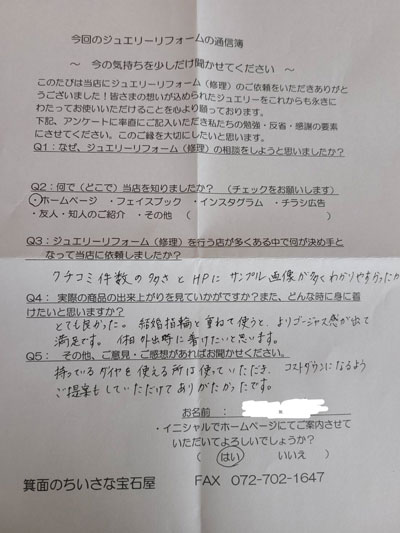 今回のジュエリーリフォームの通信簿
～ 今の気持ちを少しだけ聞かせてください ～
このたびは当店にジュエリーリフォーム（修理）のご依頼をいただきありがと
うございました！皆さまの想いが込められたジュエリーをこれからも永きに
わたってお使いいただけることを心より願っております。
下記、アンケートに率直にご記入いただき私たちの勉強・反省・感謝の要素
にさせてください。このご縁を大切にしたいと思います。
Q1：なぜ、ジュエリーリフォーム（修理）の相談をしようと思いましたか？
Q2：何で（どこで）当店を知りましたか？ （チェックをお願いします）
・ホームページ ・フェイスブック ・インスタグラム ・チラシ広告
・友人・知人のご紹介 ・その他 （ ）
Q3：ジュエリーリフォーム（修理）を行う店が多くある中で何が決め手と
なって当店に依頼しましたか？
クチコミ件数の多さとHPにサンプル画像が多くわかりやすかったか
Q4： 実際の商品の出来上がりを見ていかがですか？また、どんな時に身に着
けたいと思いますか？
とても良かった。結婚指輪と重ねて使うと、よりゴージャス感が出て
満足です。休日外出時に着けたいと思います。
Q5： その他、ご意見・ご感想があればお聞かせください。
持っているダイヤを使える所は使っていただき、コストダウンになるよう
ご提案もしていただけてありがたかったです。
お名前 ：
・イニシャルでホームページにてご案内させて
いただいてよろしいでしょうか？
（ はい いいえ ）
箕面のちいさな宝石屋 FAX 072-702-1647